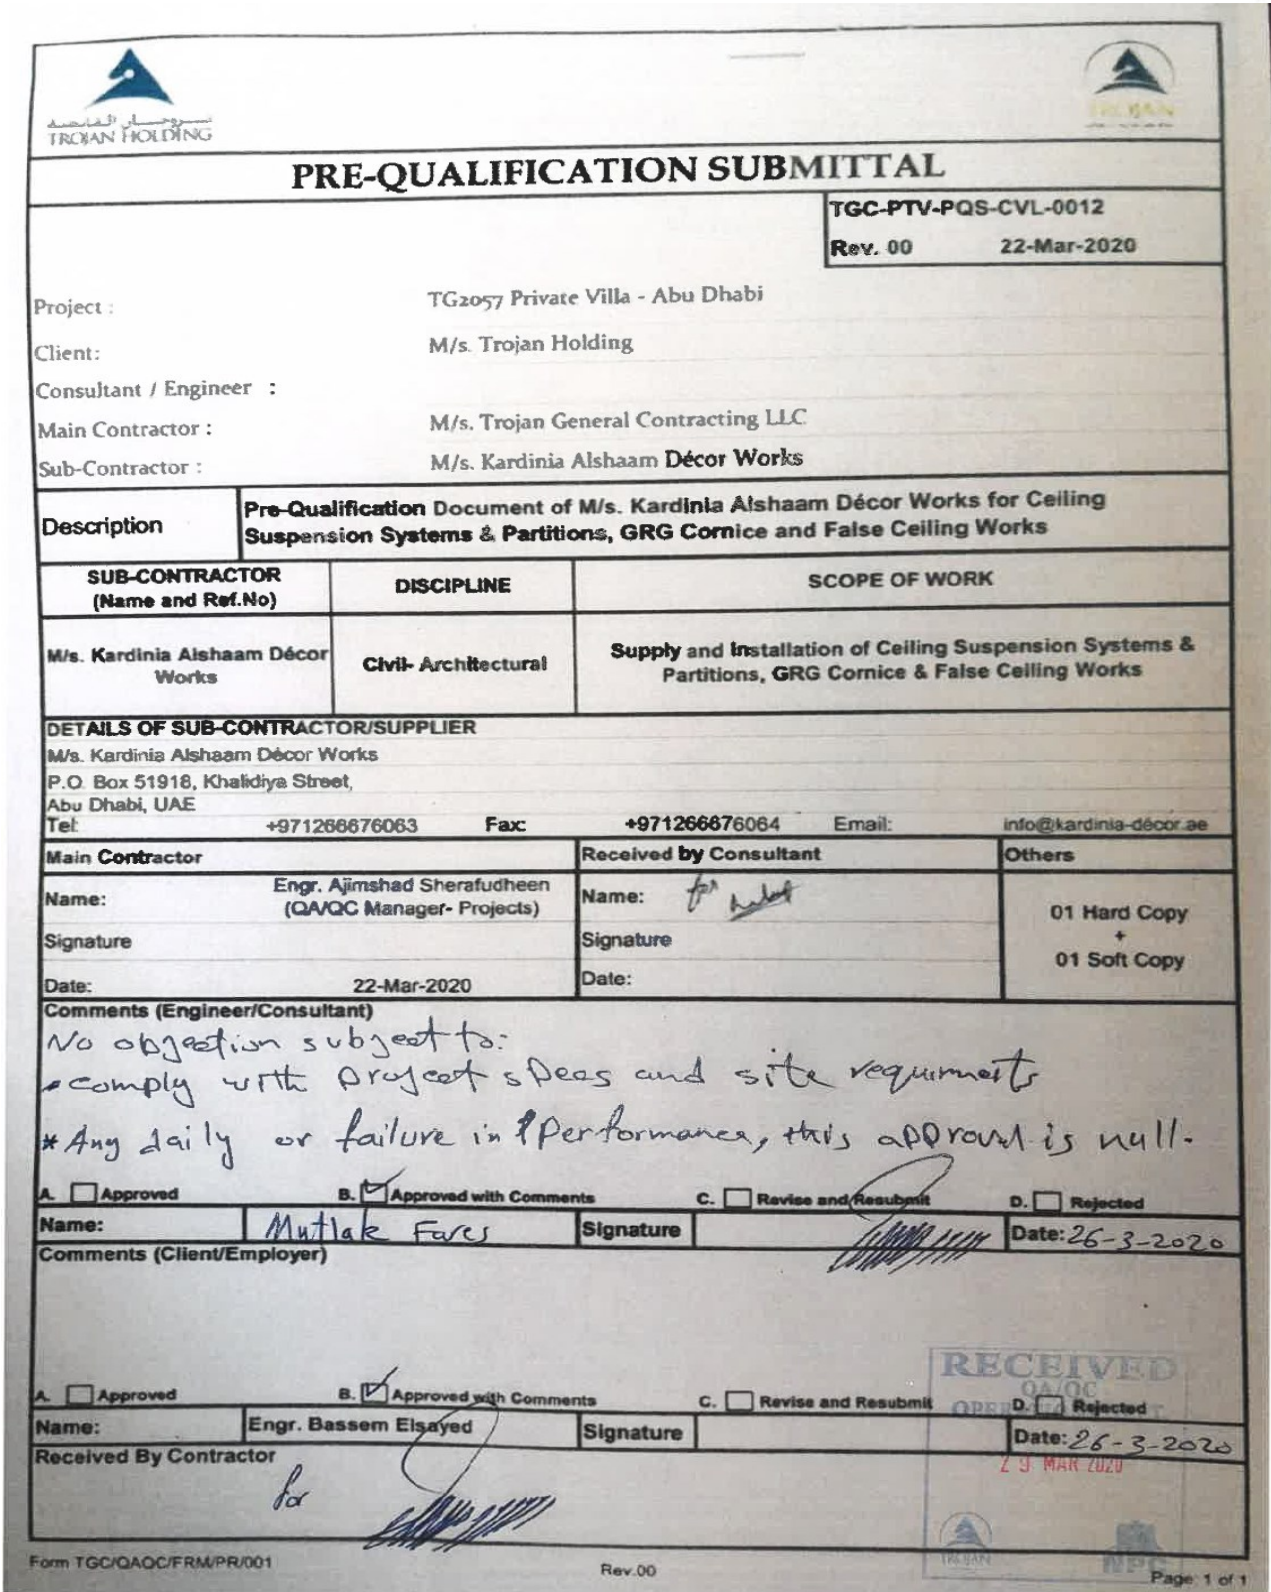 تروجان القابضة
TROJAN HOLDING
TROJAN
PRE-QUALIFICATION SUBMITTAL
TGC-PTV-PQS-CVL-0012
Rev. 00 22-Mar-2020
Project : TG2057 Private Villa - Abu Dhabi
Client: M/s. Trojan Holding
Consultant / Engineer :
Main Contractor : M/s. Trojan General Contracting LLC
Sub-Contractor : M/s. Kardinia Alshaam Décor Works
Description
Pre-Qualification Document of M/s. Kardinia Alshaam Décor Works for Ceiling
Suspension Systems & Partitions, GRG Cornice and False Ceiling Works
SUB-CONTRACTOR
(Name and Ref.No)
DISCIPLINE
SCOPE OF WORK
M/s. Kardinia Alshaam Décor
Works
Civil- Architectural
Supply and Installation of Ceiling Suspension Systems &
Partitions, GRG Cornice & False Ceiling Works
DETAILS OF SUB-CONTRACTOR/SUPPLIER
M/s. Kardinia Alshaam Décor Works
P.O. Box 51918, Khalidiya Street,
Abu Dhabi, UAE
Tel: +971266676063 Fax: +971266676064 Email: info@kardinia-décor.ae
Main Contractor Received by Consultant Others
Name: Engr. Ajimshad Sherafudheen
(QA/QC Manager- Projects)
Name: for
01 Hard Copy
+
01 Soft Copy
Signature Signature
Date: 22-Mar-2020 Date:
Comments (Engineer/Consultant)
No objection subject to:
comply with project specs and site requirments
* Any daily or failure in performance, this approval is null.
A. Approved B. Approved with Comments C. Revise and Resubmit D. Rejected
Name: Mutlak Fares Signature Date: 26-3-2020
Comments (Client/Employer)
RECEIVED
QA/QC
A. Approved B. Approved with Comments C. Revise and Resubmit D. Rejected
Name: Engr. Bassem Elsayed Signature Date: 26-3-2020
29 MAR 2020
Received By Contractor
for
TROJAN NPC
Form TGC/QAQC/FRM/PR/001 Rev.00 Page: 1 of 1